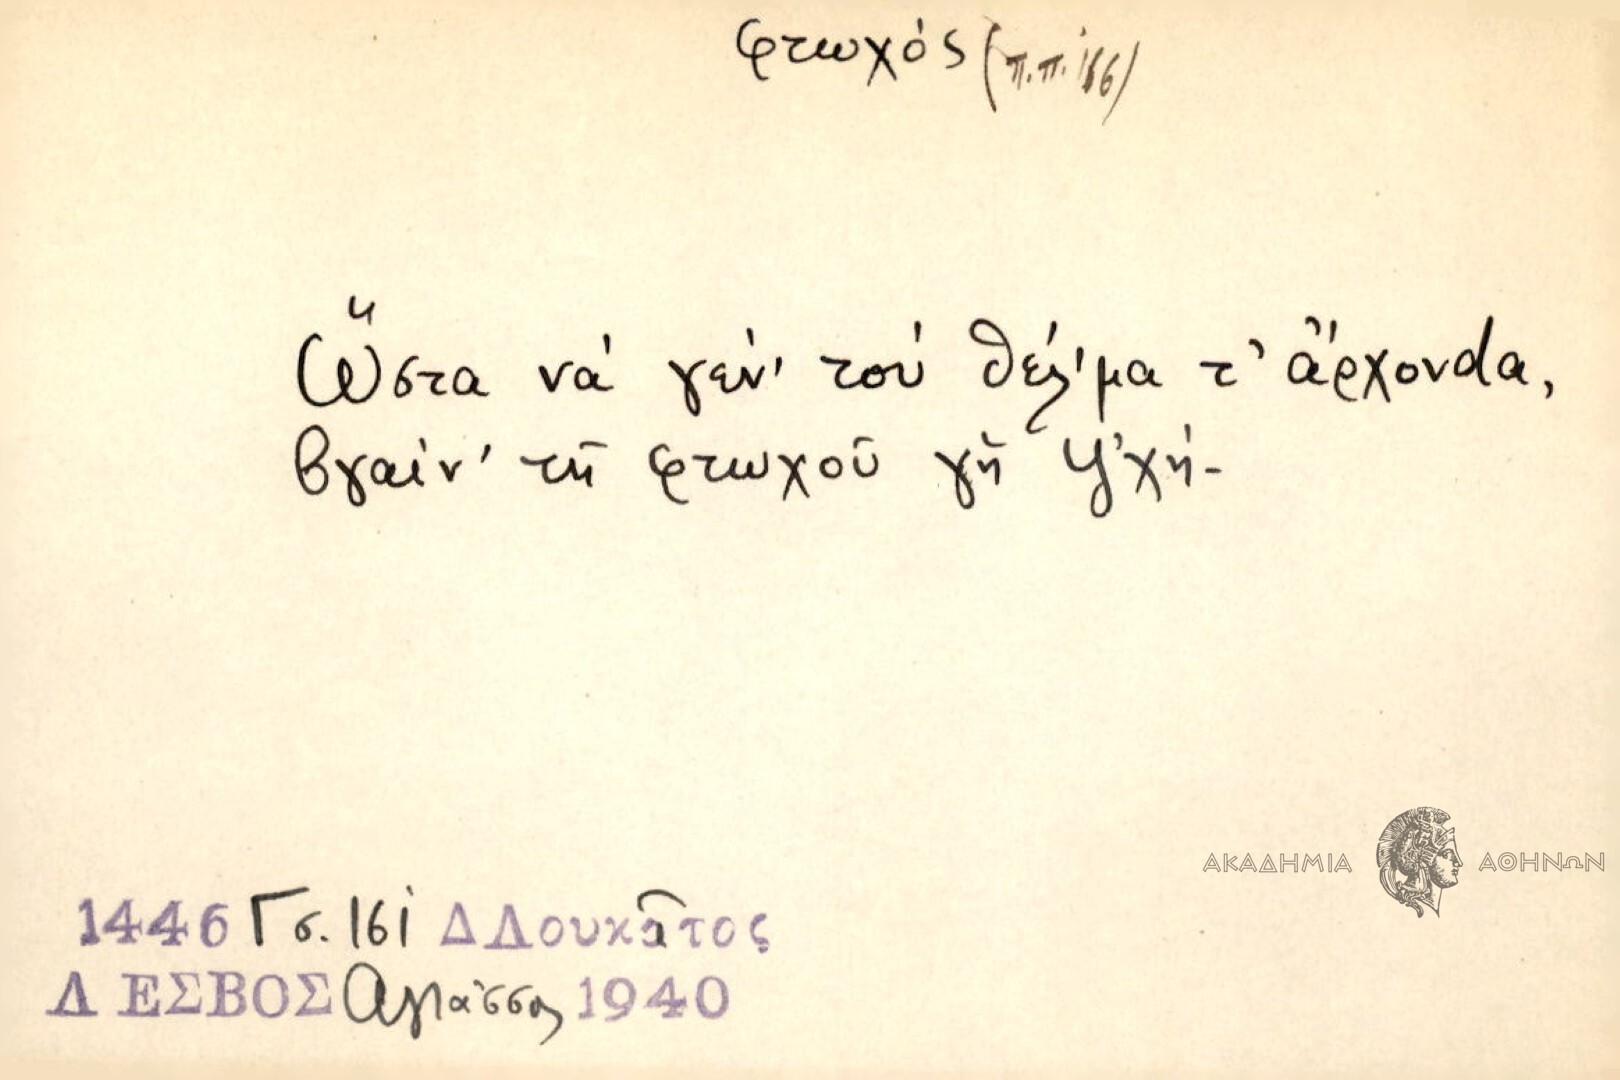 φτωχός (π.π. 166)
Ὥστα νά γεν' τού θέλ'μα τ' ἄρχονdα,
βγαίν' τῆ φτωχοῦ γὴ ψ'χή-
ΑΚΑΔΗΜΙΑ ΑΘΗΝΩΝ
1446 Γσ. 161 Δ Δουκᾶτος
ΛΕΣΒΟΣ Ἁγιάσσος 1940